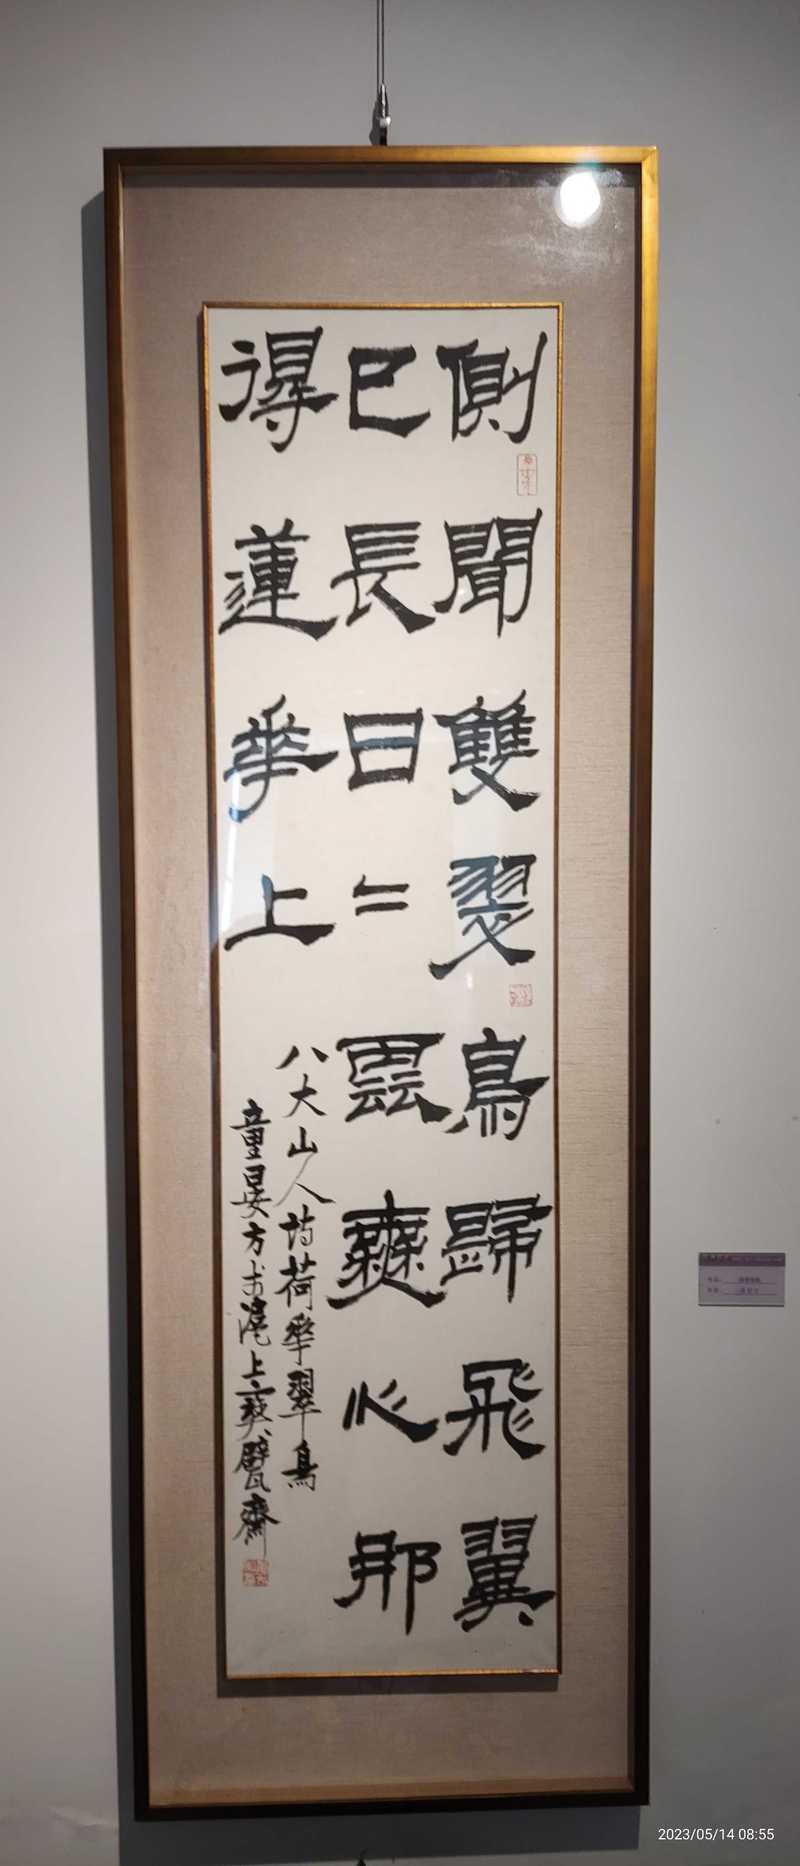 側聞雙翠鳥歸飛翼
已長日〻雲無心那
得蓮華上
八大山人詩荷華翠鳥
童晏方書滬上
2023/05/14 08:55